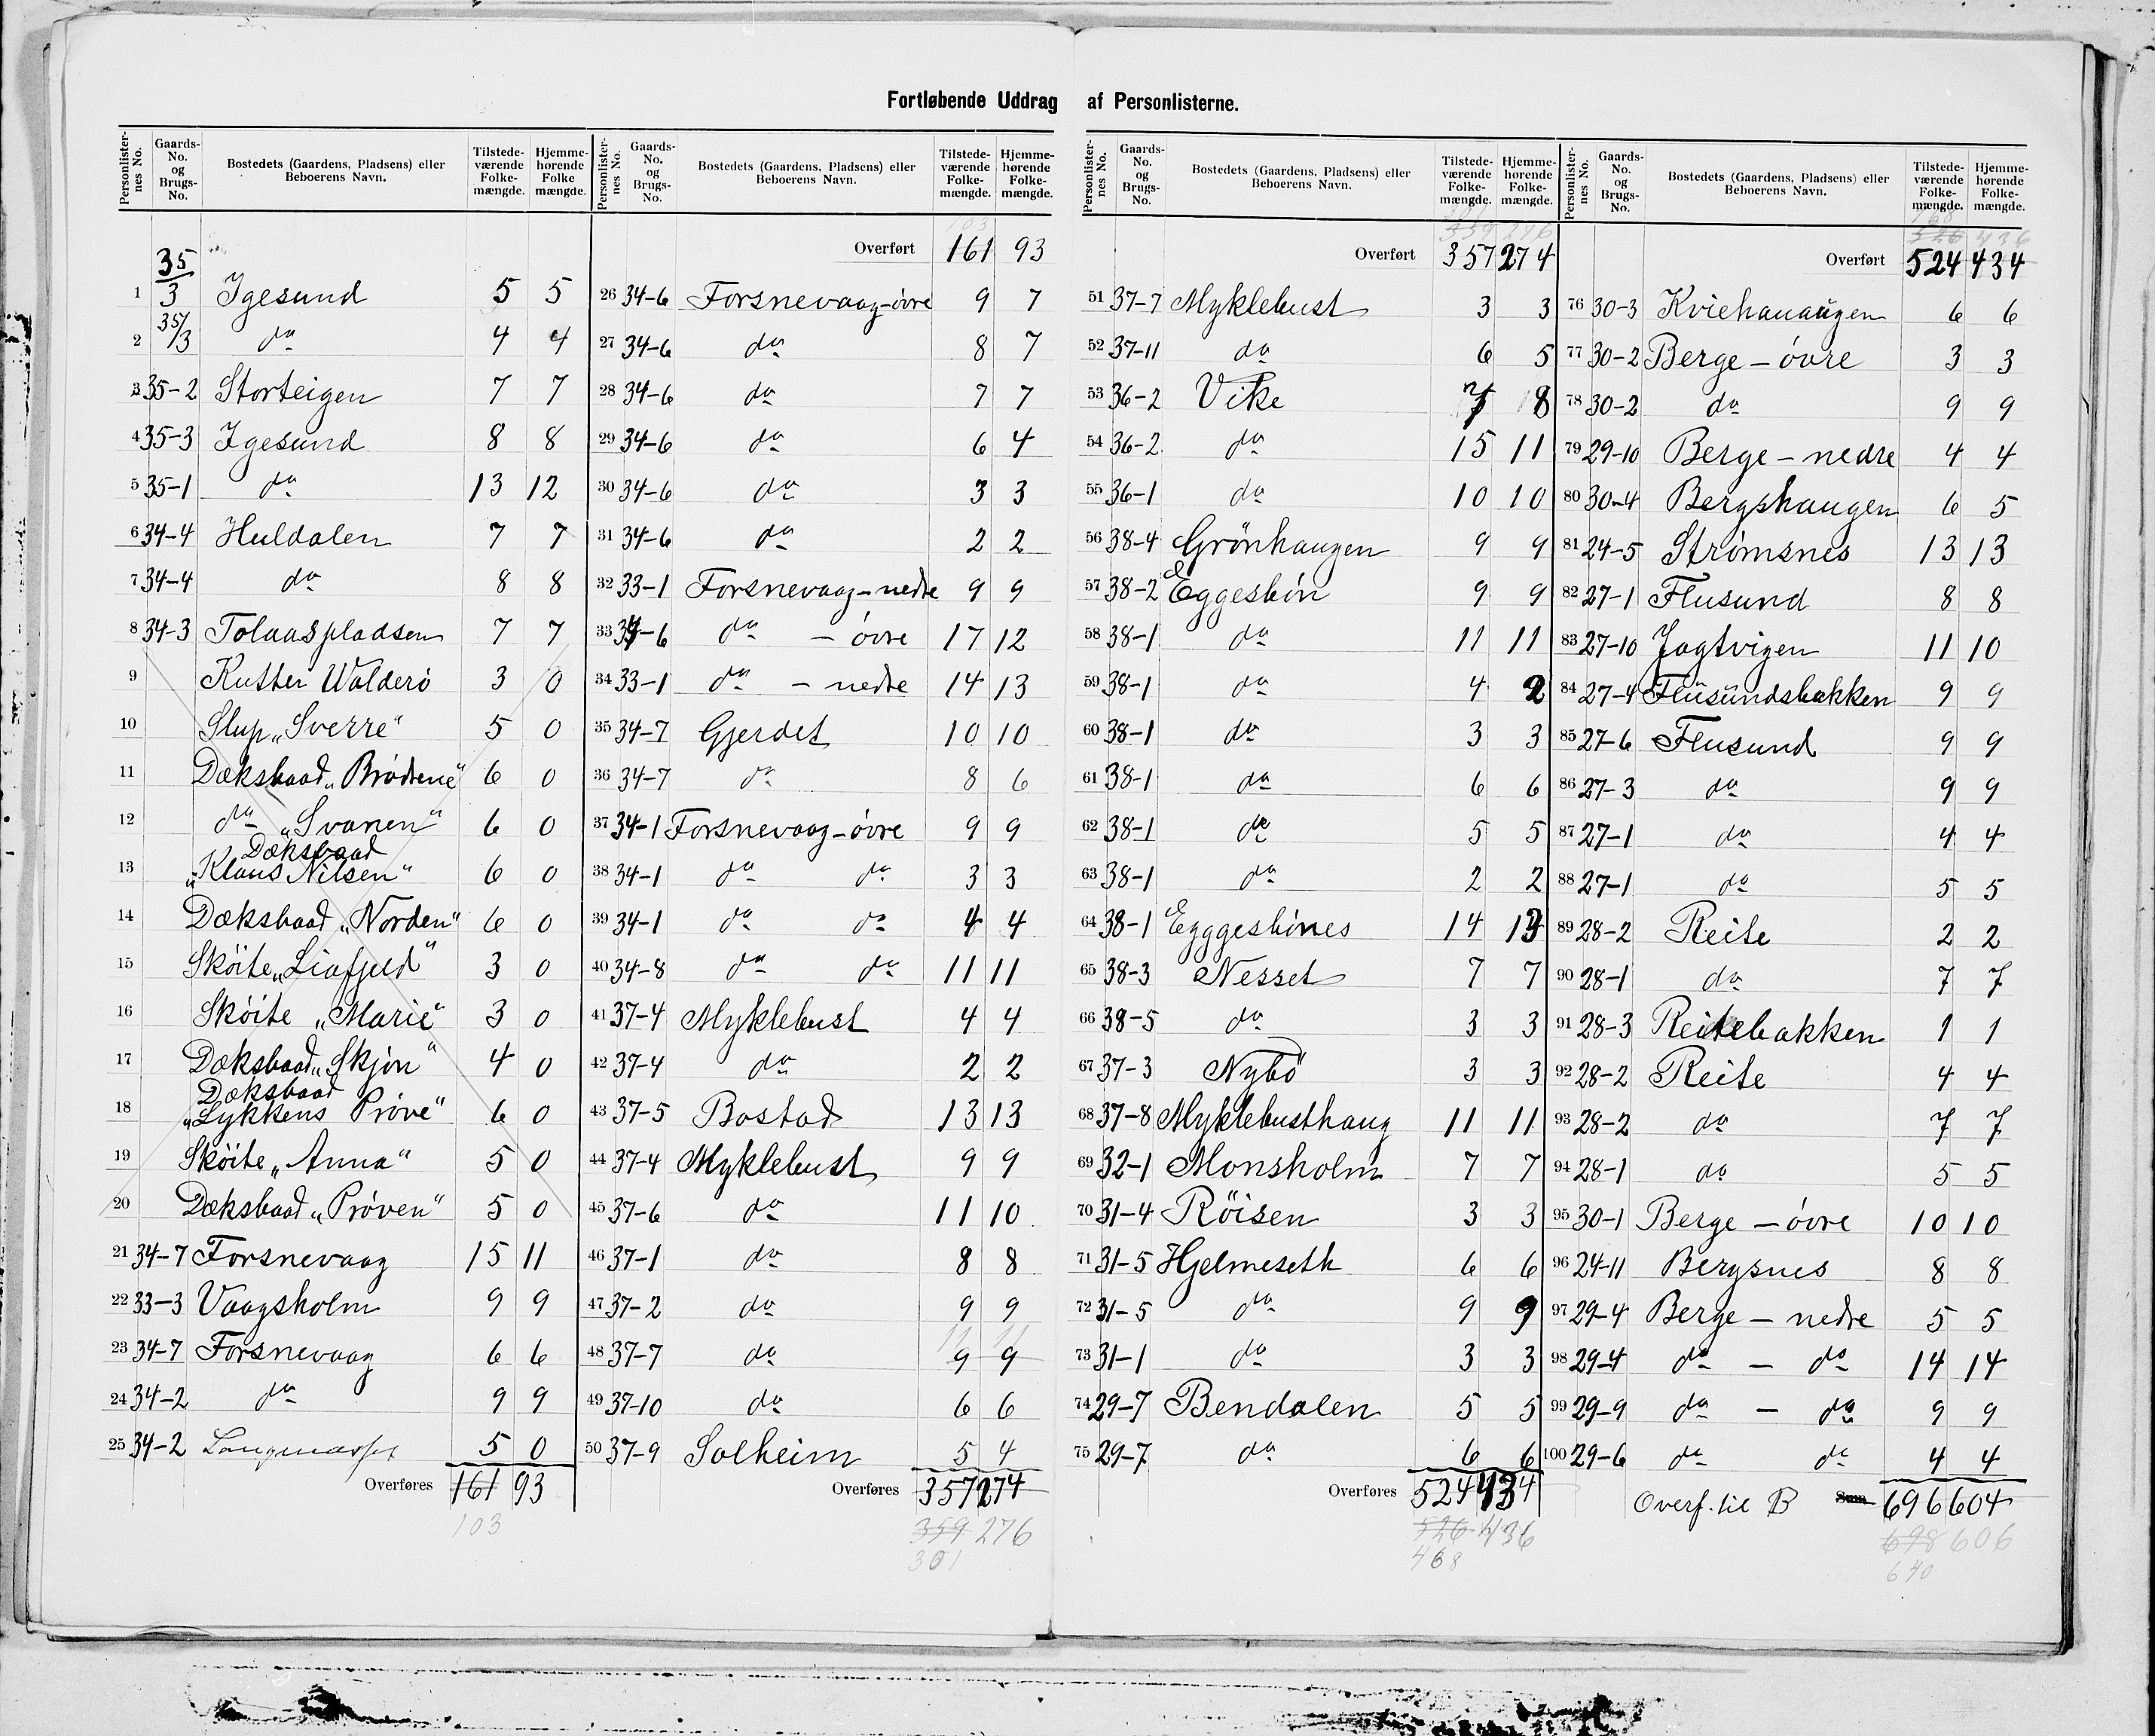 Fortløbende Uddrag af Personlisterne.
Personlisternes No. Gaards-No. og Brugs-No. Bostedets (Gaardens, Pladsens) eller Beboerens Navn. Tilstedeværende Folkemængde. Hjemmehørende Folkemængde.
1 35/3 Igesund 5 5
2 35/3 do 4 4
3 35-2 Storteigen 7 7
4 35-3 Igesund 8 8
5 35-1 do 13 12
6 34-4 Huldalen 7 7
7 34-4 do 8 8
8 34-3 Tolaaspladsen 7 7
9 Kutter Walderö 3 0
10 Slup „Sverre" 5 0
11 Dæksbaad „Brödrene" 6 0
12 do „Svanen" 6 0
13 Dæksbaad „Klaus Nilsen" 6 0
14 Dæksbaad „Norden" 6 0
15 Sköite „Liafjeld" 3 0
16 Sköite „Marie" 3 0
17 Dæksbaad „Skjön" 4 0
18 Dæksbaad „Lykkens Pröve" 6 0
19 Sköite „Anna" 5 0
20 Dæksbaad „Pröven" 5 0
21 34-7 Forsnevaag 15 11
22 33-3 Vaagsholm 9 9
23 34-7 Forsnevaag 6 6
24 34-2 do 9 9
25 34-2 5 0
Overføres 161 93
103
Personlisternes No. Gaards-No. og Brugs-No. Bostedets (Gaardens, Pladsens) eller Beboerens Navn. Tilstedeværende Folkemængde. Hjemmehørende Folkemængde.
103
Overført 161 93
26 34-6 Forsnevaag-övre 9 7
27 34-6 do 8 7
28 34-6 do 7 7
29 34-6 do 6 4
30 34-6 do 3 3
31 34-6 do 2 2
32 33-1 Forsnevaag-nedre 9 9
33 34-6 do - övre 17 12
34 33-1 do - nedre 14 13
35 34-7 Gjerdet 10 10
36 34-7 do 8 6
37 34-1 Forsnevaag-övre 9 9
38 34-1 do do 3 3
39 34-1 do do 4 4
40 34-8 do do 11 11
41 37-4 Myklebust 4 4
42 37-4 do 2 2
43 37-5 Bostad 13 13
44 37-4 Myklebust 9 9
45 37-6 do 11 10
46 37-1 do 8 8
47 37-2 do 9 9
11 11
48 37-7 do 9 9
49 37-10 do 6 6
50 37-9 Solheim 5 4
Overføres 357 274
359 276
301
Personlisternes No. Gaards-No. og Brugs-No. Bostedets (Gaardens, Pladsens) eller Beboerens Navn. Tilstedeværende Folkemængde. Hjemmehørende Folkemængde.
301
359 276
Overført 357 274
51 37-7 Myklebust 3 3
52 37-11 do 6 5
53 36-2 Vike 7 8
54 36-2 do 15 11
55 36-1 do 10 10
56 38-4 Grönhaugen 9 9
57 38-2 Eggesbön 9 9
58 38-1 do 11 11
59 38-1 do 4 2
60 38-1 do 3 3
61 38-1 do 6 6
62 38-1 do 5 5
63 38-1 do 2 2
64 38-1 Egggesbönes 14 13
65 38-3 Nesset 7 7
66 38-5 do 3 3
67 37-3 Nybö 3 3
68 37-8 Myklebusthaug 11 11
69 32-1 Monsholm 7 7
70 31-4 Röisen 3 3
71 31-5 Hjelmeseth 6 6
72 31-5 do 9 9
73 31-1 do 3 3
74 29-7 Bendalen 5 5
75 29-7 do 6 6
Overføres 524 434
526 436
468
Personlisternes No. Gaards-No. og Brugs-No. Bostedets (Gaardens, Pladsens) eller Beboerens Navn. Tilstedeværende Folkemængde. Hjemmehørende Folkemængde.
468
526 436
Overført 524 434
76 30-3 Kviehauaugen 6 6
77 30-2 Berge - övre 3 3
78 30-2 do 9 9
79 29-10 Berge - nedre 4 4
80 30-4 Bergshaugen 6 5
81 24-5 Strömsnes 13 13
82 27-1 Flusund 8 8
83 27-10 Jagtvigen 11 10
84 27-4 Flusundsbakken 9 9
85 27-6 Flusund 9 9
86 27-3 do 9 9
87 27-1 do 4 4
88 27-1 do 5 5
89 28-2 Reite 2 2
90 28-1 do 7 7
91 28-3 Reitebakken 1 1
92 28-2 Reite 4 4
93 28-2 do 7 7
94 28-1 do 5 5
95 30-1 Berge - övre 10 10
96 24-11 Bergsnes 8 8
97 29-4 Berge - nedre 5 5
98 29-4 do - do 14 14
99 29-9 do - do 9 9
100 29-6 do do 4 4
Overf. til B Sum 696 604
698 606
640